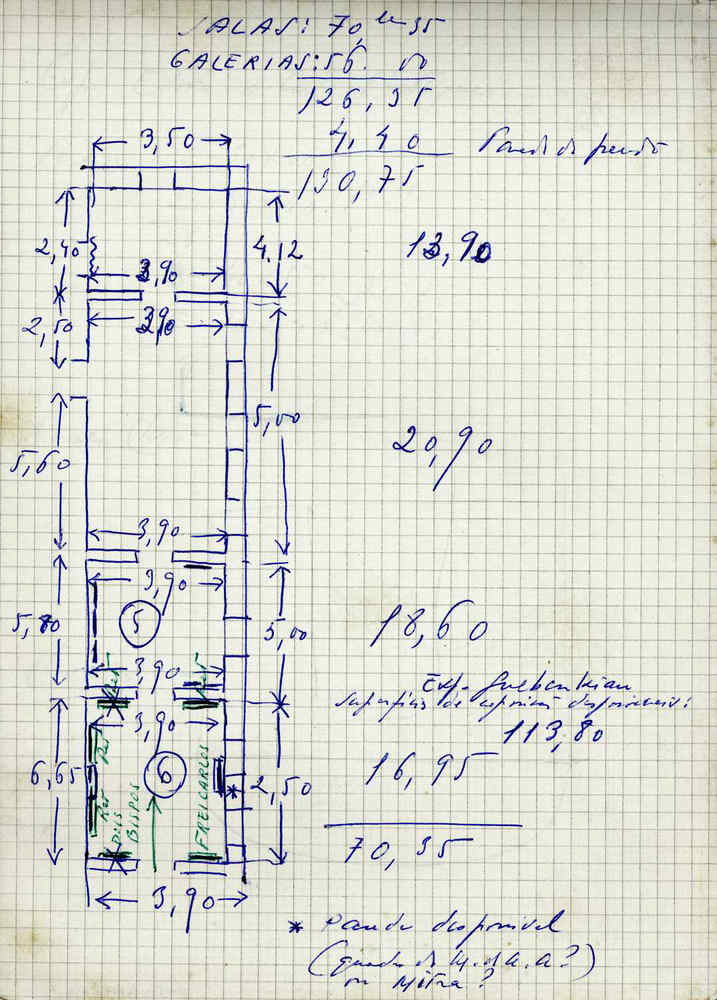 SALAS: 70, 35
GALERIAS: 56. 00
126,35
4,40
130,75
3,50
2,40
4.12
13,90
3,90
2,50
3,90
5,00
20,90
5,60
3,90
3,90
5,80
5
5,00
18,60
3,90
Exp. Gulbenkian
113,80
3,90
6,65
6
2,50
16,95
Ret
Ret
Dois
BISPOS
FREI CARLOS
70,35
3,90
* Pande disponível
(quadro do M.d.A.A?)
ou Mitra?